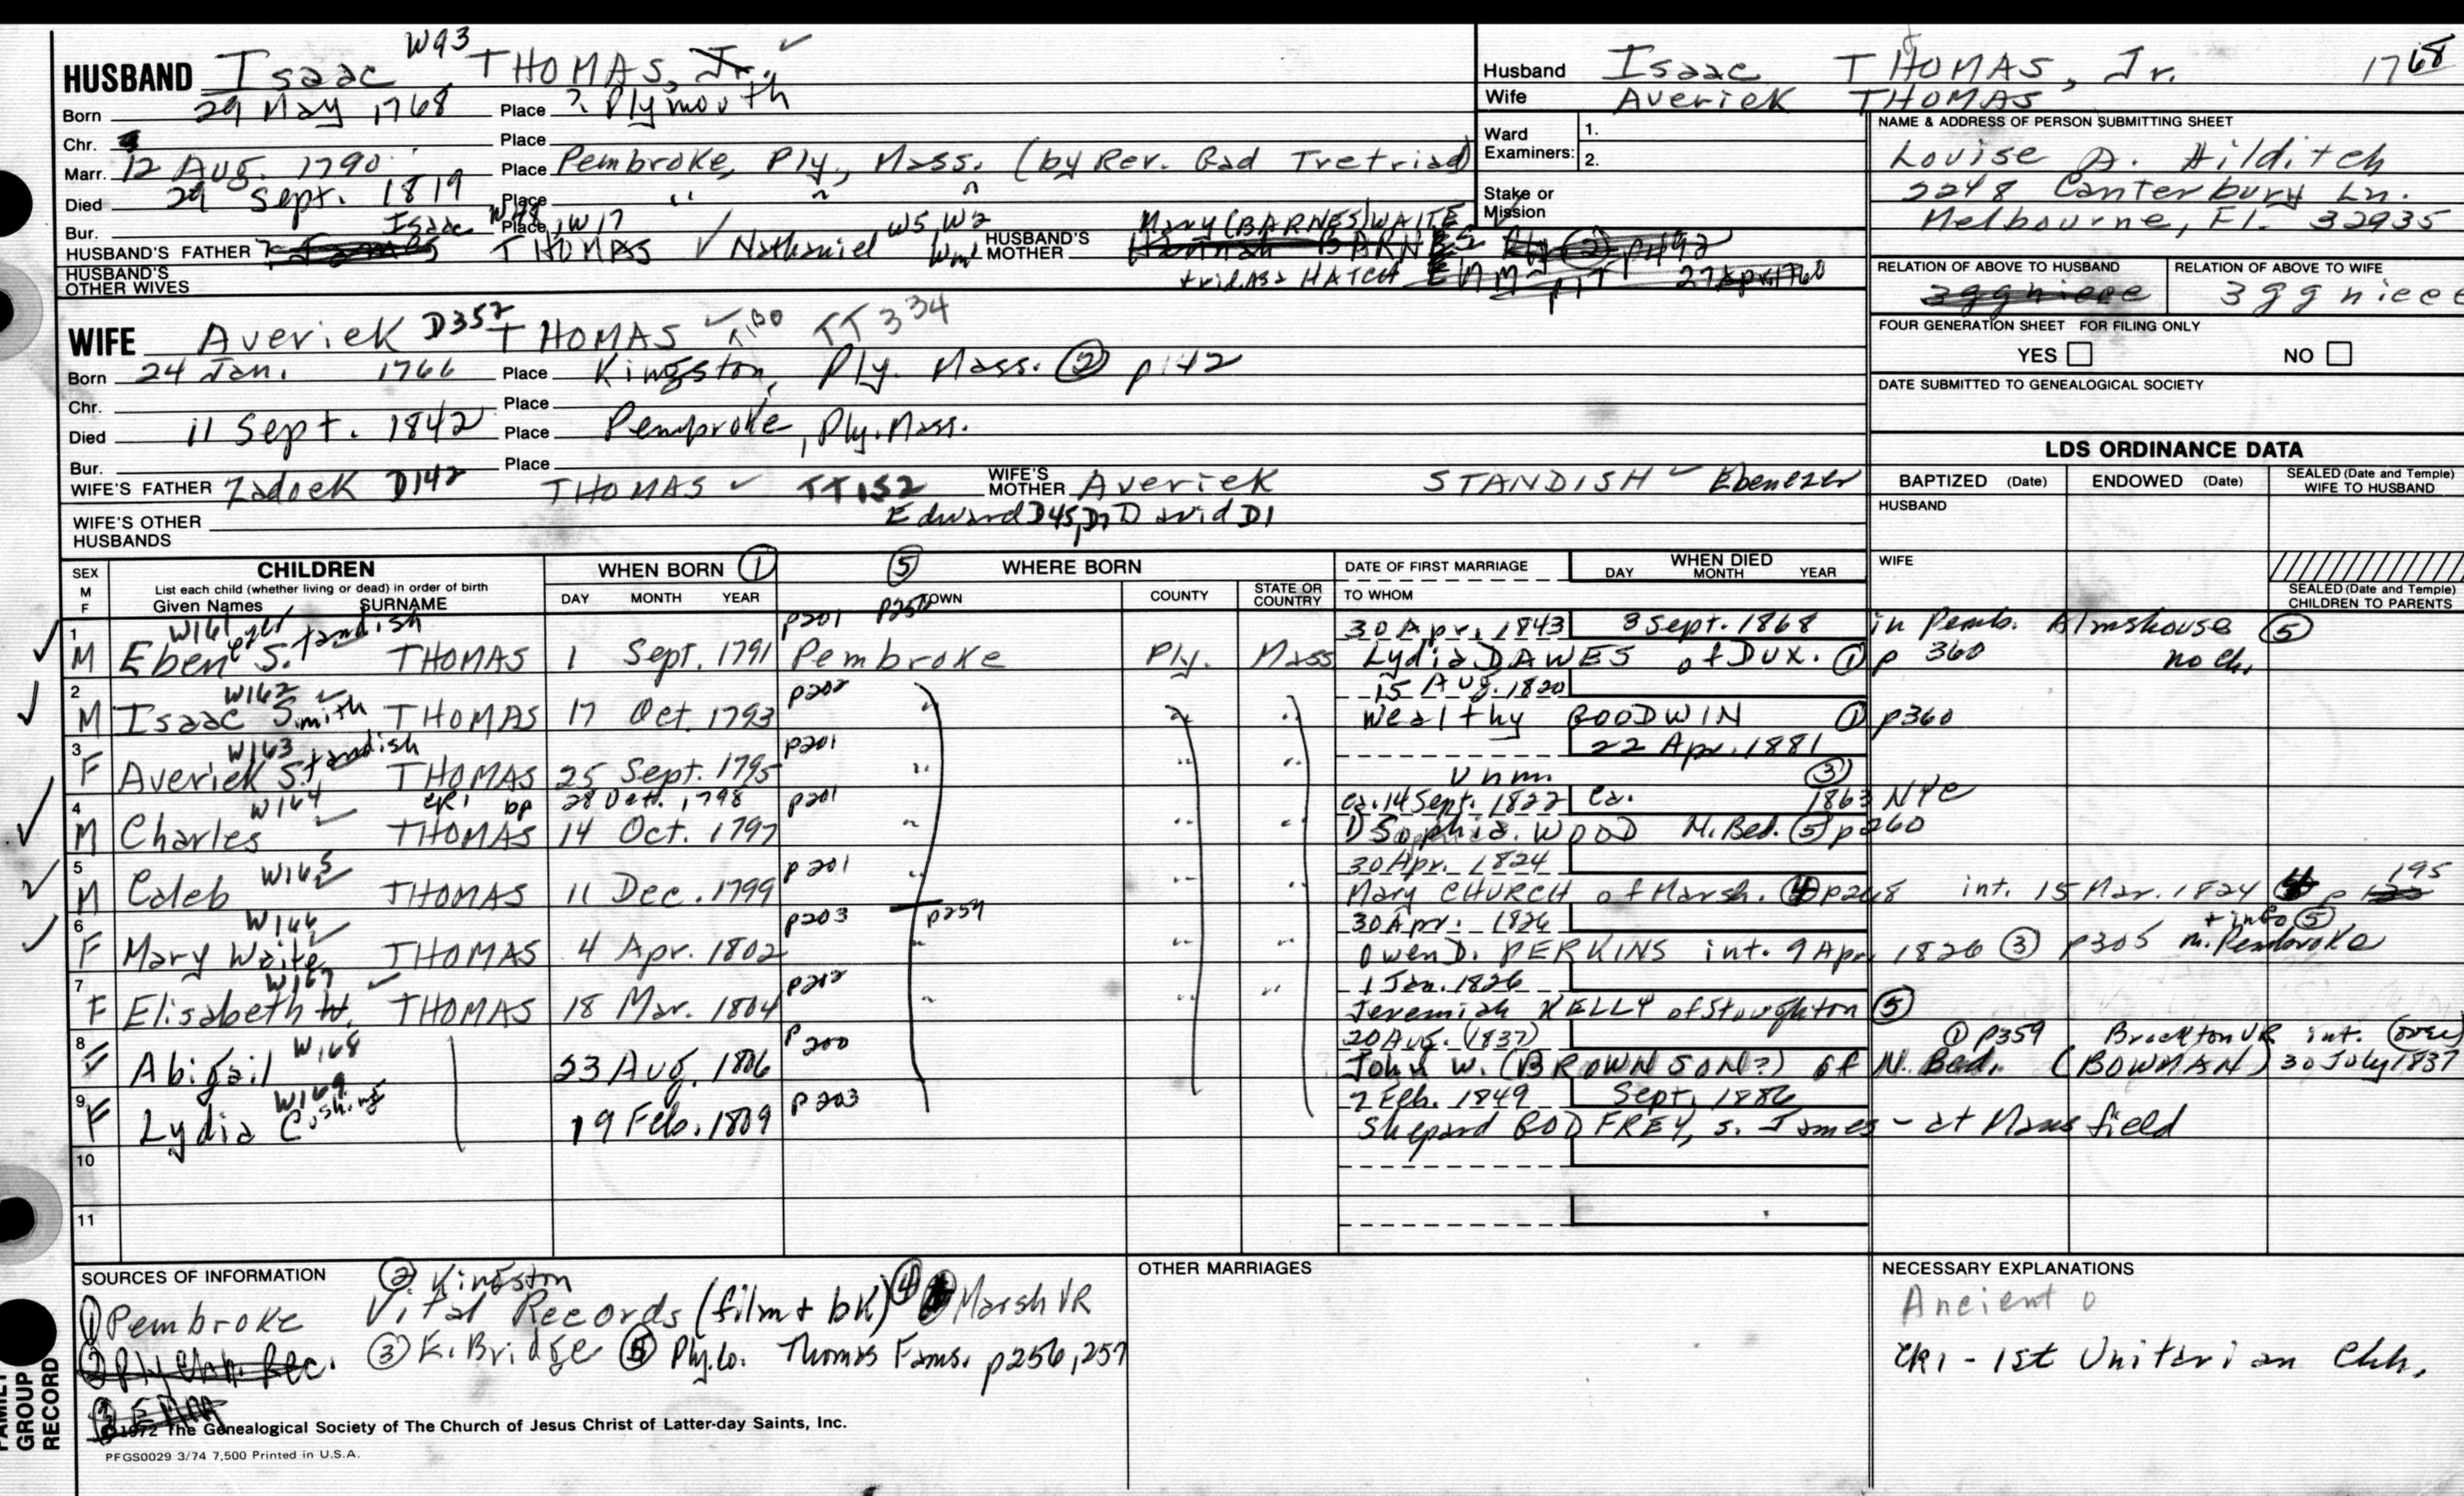 HUSBAND Isaac W93 THOMAS, Jr. ✓
Born 29 May 1768 Place ? Plymouth
Chr. Place
Marr. 12 Aug. 1790 Place Pembroke, Ply., Mass. (by Rev. Gad
Died 29 Sept. 1819 Place " "
Bur. Place
HUSBAND'S FATHER ? Isaac W48, W17 THOMAS ✓ Nathaniel W5, W2 Wm1 HUSBAND'S MOTHER Mary (BARNES) WAITE
HUSBAND'S OTHER WIVES HATCH 27 Apr 1760
WIFE Averick D352 THOMAS ✓ TT334
Born 24 Jan. 1766 Place Kingston, Ply. Mass. ② p142
Chr. Place
Died 11 Sept. 1842 Place Pembroke, Ply. Mass.
Bur. Place
WIFE'S FATHER Zadock D142 THOMAS ✓ TT152 WIFE'S MOTHER Averick STANDISH ✓ Ebenezer
Edward D45, D7 David D1
WIFE'S OTHER HUSBANDS
Husband Isaac THOMAS, Jr. 1768
Wife Averick THOMAS
Ward Examiners: 1. 2.
Stake or Mission
NAME & ADDRESS OF PERSON SUBMITTING SHEET
Louise A. Hilditch
2248 Canterbury Ln.
Melbourne, Fl. 32935
RELATION OF ABOVE TO HUSBAND RELATION OF ABOVE TO WIFE
3ggniece 3gg niece
FOUR GENERATION SHEET FOR FILING ONLY
YES NO
DATE SUBMITTED TO GENEALOGICAL SOCIETY
LDS ORDINANCE DATA
BAPTIZED (Date) ENDOWED (Date) SEALED (Date and Temple) WIFE TO HUSBAND
HUSBAND
WIFE
SEALED (Date and Temple) CHILDREN TO PARENTS
SEX M F CHILDREN List each child (whether living or dead) in order of birth Given Names SURNAME
WHEN BORN ① DAY MONTH YEAR
⑤ WHERE BORN TOWN COUNTY STATE OR COUNTRY
DATE OF FIRST MARRIAGE TO WHOM
WHEN DIED DAY MONTH YEAR
W161 p201 p257 30 Apr. 1843 3 Sept. 1868 in Pemb. Almshouse ⑤
1 M Ebenezer Standish THOMAS 1 Sept. 1791 Pembroke Ply. Mass Lydia DAWES of Dux. ① p 360 no ch.
W162 p202 15 Aug. 1820
2 M Isaac Smith THOMAS 17 Oct. 1793 " " " Wealthy GOODWIN ① p360
W163 p201 22 Apr. 1881
3 F Averick Standish THOMAS 25 Sept. 1795 " " " Unm. ③
W164 CR1 bp 28 Oct. 1798 p201 ca. 14 Sept. 1822 ca. 1863 NYC
4 M Charles THOMAS 14 Oct. 1797 " " " D Sophia WOOD N. Bed. ⑤ p260
W165 p201 30 Apr. 1824
5 M Caleb THOMAS 11 Dec. 1799 " " " Mary CHURCH of Marsh. ④ p268 int. 15 Mar. 1824 p 195
W166 p203 p259 30 Apr. 1826 + info ⑤
6 F Mary Waite THOMAS 4 Apr. 1802 " " " Owen D. PERKINS int. 9 Apr. 1826 ③ p305 m. Pembroke
W167 p202 1 Jan. 1826
7 F Elisabeth W. THOMAS 18 Mar. 1804 " " " Jeremiah KELLY of Stoughton ⑤
W168 p200 20 Aug. (1837) ① p359 Brockton VR int. (over)
8 F Abigail 23 Aug. 1806 John W. (BROWNSON?) of N. Bed. (BOWMAN) 30 July 1837
W169 p203 7 Feb. 1849 Sept. 1886
9 F Lydia Cushing 19 Feb. 1809 Shepard GODFREY, s. James - at Mansfield
10
11
SOURCES OF INFORMATION
② Kingston
① Pembroke Vital Records (film + bk) ④ Marsh VR
③ K. Bridge ⑤ Ply. Co. Thomas Fams. p256, 257
OTHER MARRIAGES
NECESSARY EXPLANATIONS
Ancient
CR1 - 1st Unitarian Chh.
FAMILY GROUP RECORD
©1972 The Genealogical Society of The Church of Jesus Christ of Latter-day Saints, Inc.
PFGS0029 3/74 7,500 Printed in U.S.A.